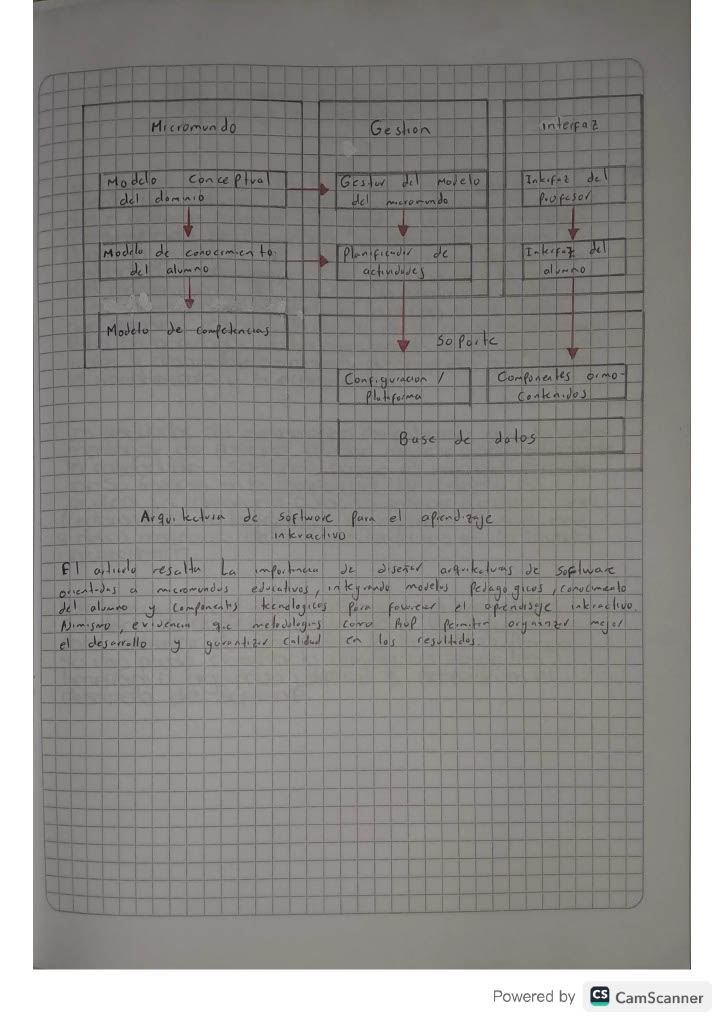 Micromundo
Modelo Conceptual
del dominio
Modelo de conocimiento
del alumno
Modelo de competencias
Gestion
Gestor del Modelo
del micromundo
Planificador de
actividades
interfaz
Interfaz del
Profesor
Interfaz del
alumno
Soporte
Configuracion /
Plataforma
Componentes
Contenidos
Base de datos
Arquitectura de software para el aprendizaje
interactivo
El articulo resalta La importancia de diseñar arquitecturas de software
orientadas a micromundos educativos, integrando modelos Pedagogicos, conocimiento
del alumno y componentes tecnologicos para favorecer el aprendisaje interactivo.
Asimismo, evidencia que metodologias como RUP permiten organizar mejor
el desarrollo y garantizar calidad en los resultados.
Powered by CS CamScanner